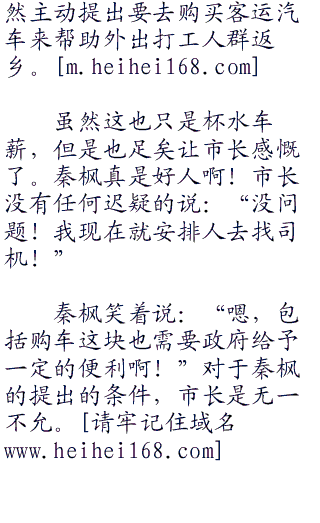 然主动提出要去购买客运汽
车来帮助外出打工人群返
乡。[m.heihei168.com]
虽然这也只是杯水车
薪，但是也足矣让市长感慨
了。秦枫真是好人啊！市长
没有任何迟疑的说：“没问
题！我现在就安排人去找司
机！”
秦枫笑着说：“嗯，包
括购车这块也需要政府给予
一定的便利啊！”对于秦枫
的提出的条件，市长是无一
不允。[请牢记住域名
www.heihei168.com]